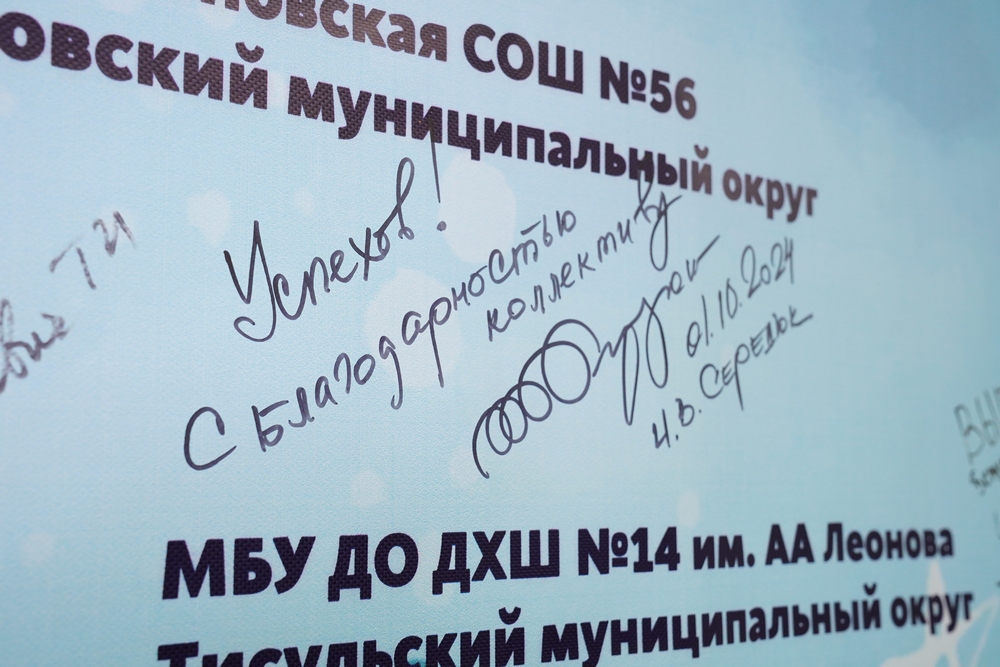 новская СОШ №56
овский муниципальный округ
Успехов!
С благодарностью
коллективу
01.10.2024
И.В. Середюк
МБУ ДО ДХШ №14 им. АА Леонова
Тисульский муниципальный округ